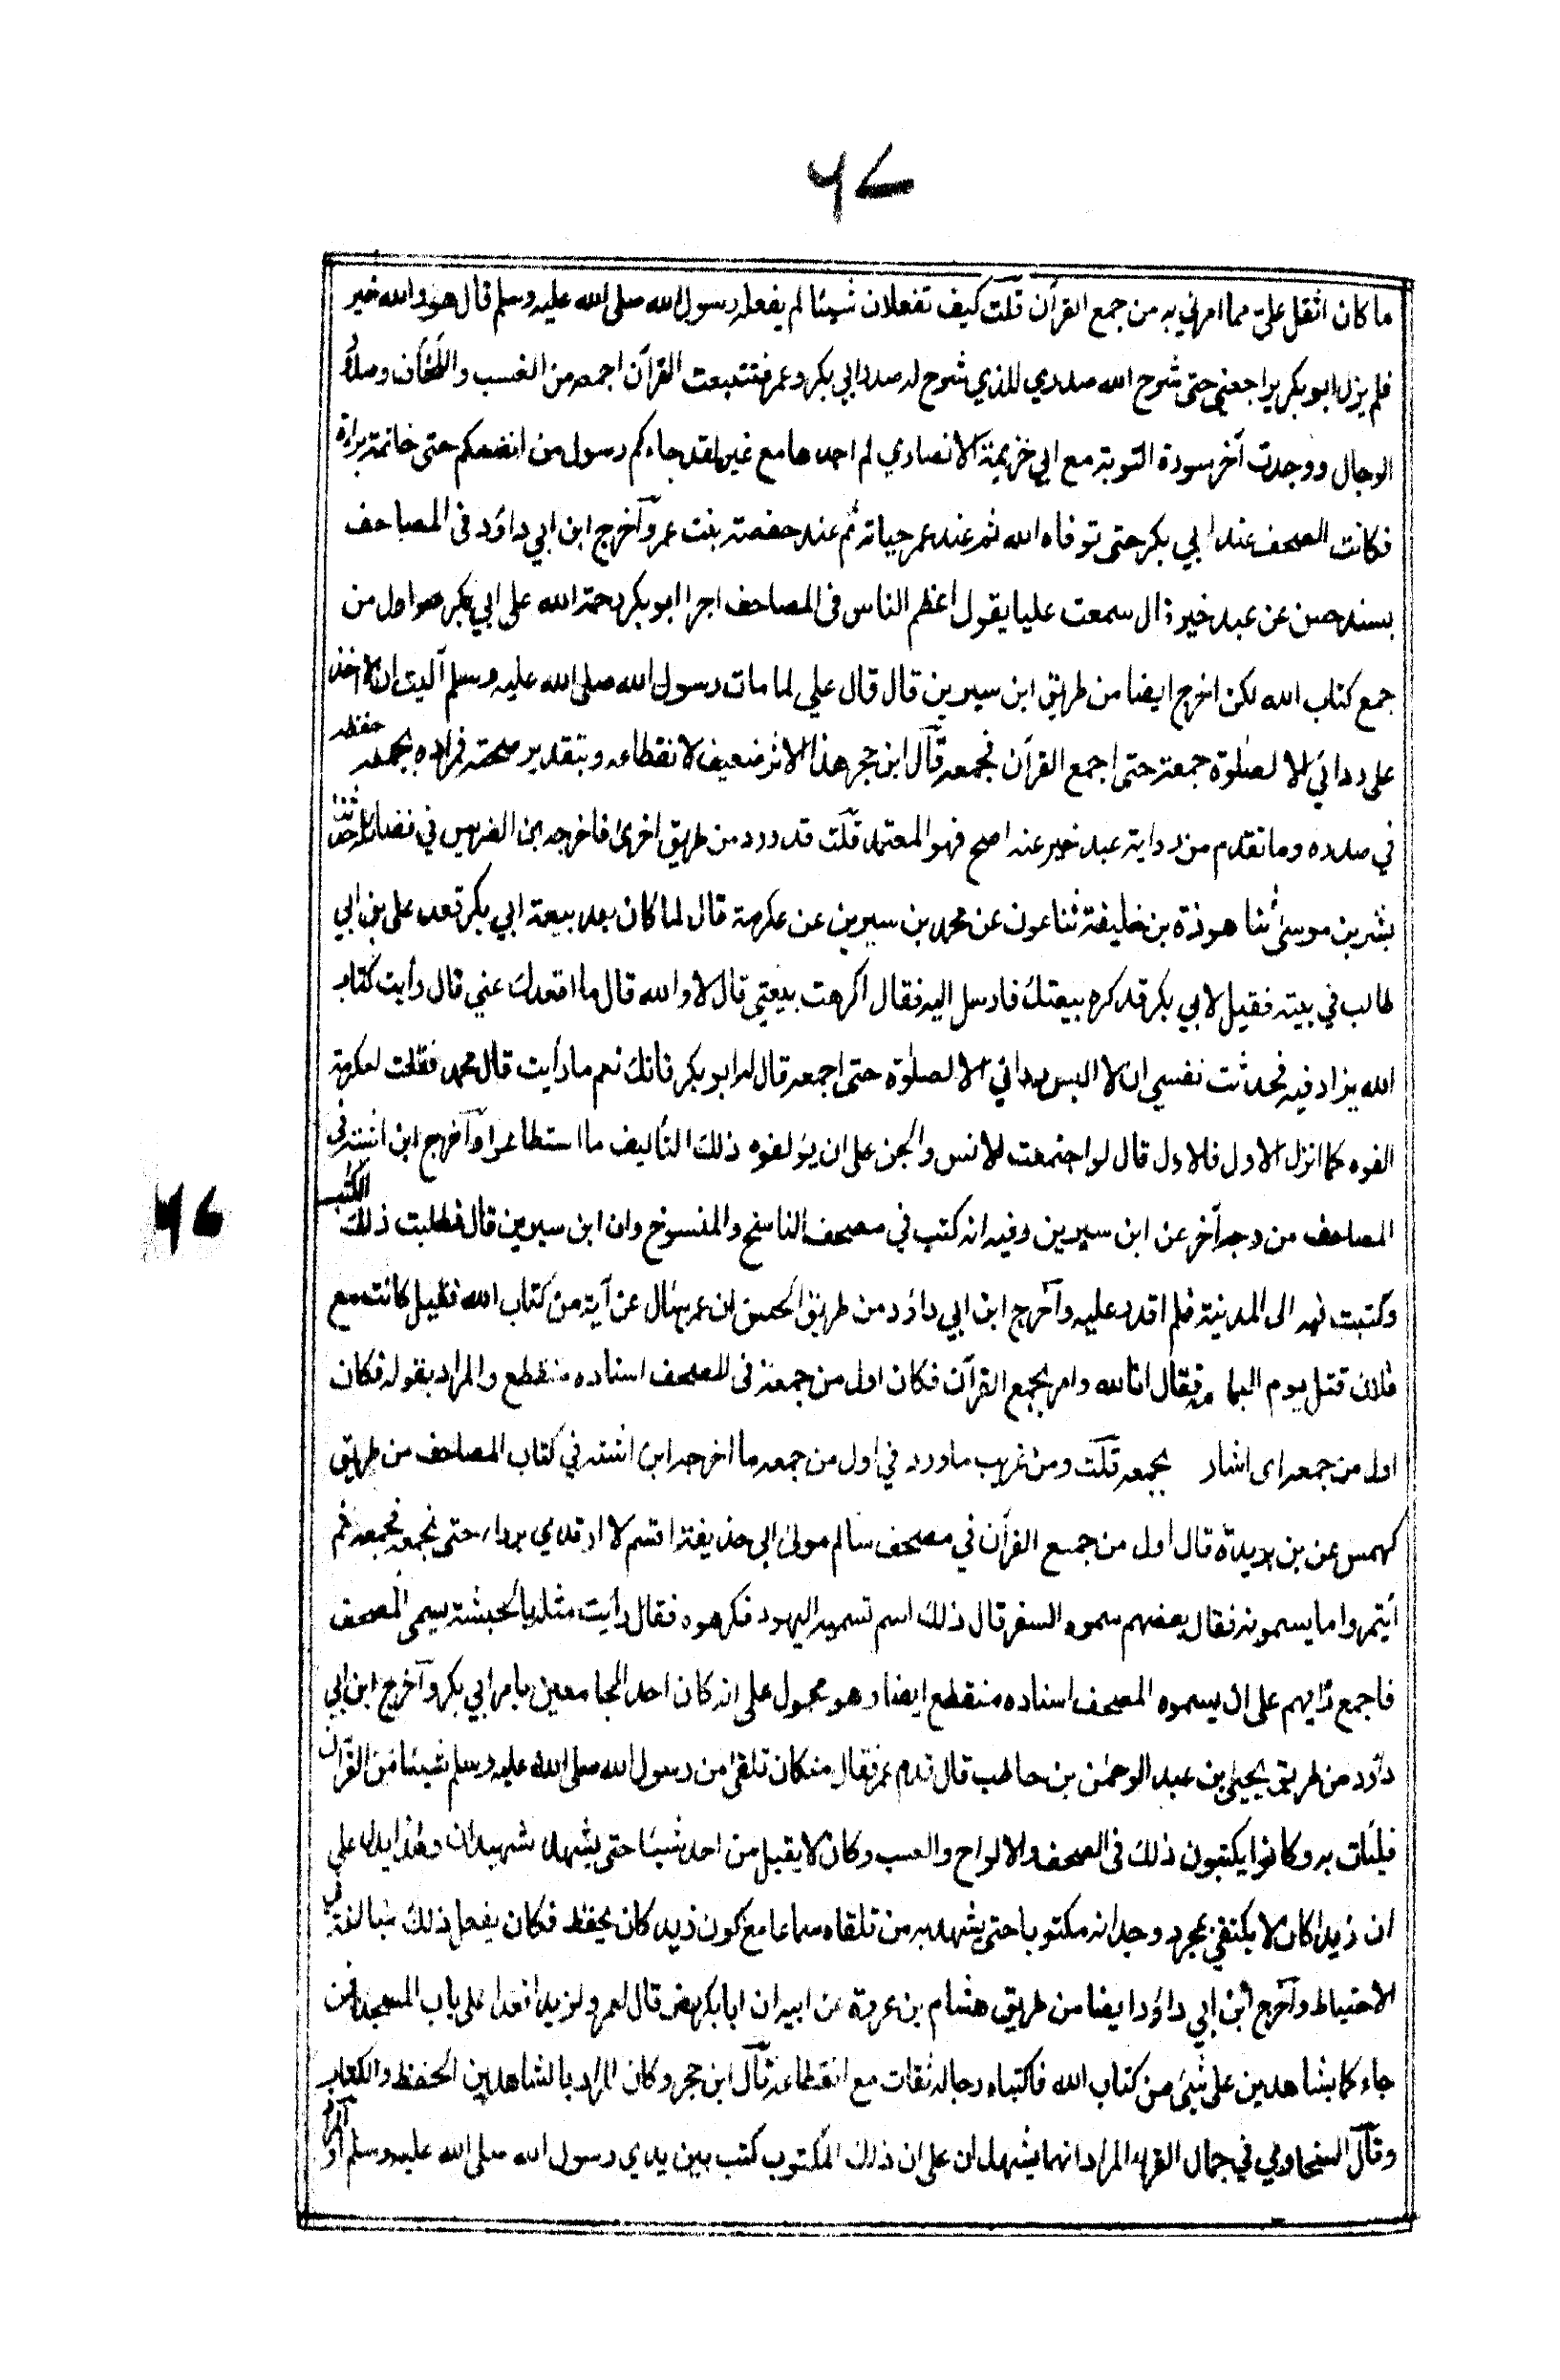 ٦٧
ما كان اثقل علي مما امرني به من جمع القرآن قلت كيف تفعلان شيئا لم يفعله رسول الله صلى الله عليه وسلم قال هو والله خير
فلم يزل ابو بكر يراجعني حتى شرح الله صدري للذي شرح له صدر ابي بكر وعمر فتتبعت القرآن اجمعه من العسب واللخاف وصدور
الرجال ووجدت آخر سورة التوبة مع ابي خزيمة الانصاري لم اجدها مع غيره لقد جاءكم رسول من انفسكم حتى خاتمة براءة
فكانت الصحف عند ابي بكر حتى توفاه الله ثم عند عمر حياته ثم عند حفصة بنت عمر وآخرج ابن ابي داؤد فى المصاحف
بسند حسن عن عبد خير قال سمعت عليا يقول اعظم الناس فى المصاحف اجرا ابو بكر رحمة الله على ابي بكر هو اول من
جمع كتاب الله لكن اخرج ايضا من طريق ابن سيرين قال قال علي لما مات رسول الله صلى الله عليه وسلم آليت ان لا اخذ
على ردائي الا لصلوة جمعة حتى اجمع القرآن فجمعه قآل ابن حجر هذا الاثر ضعيف لانقطاعه وبتقدير صحته فمراده بجمعه حفظه
في صدره وما تقدم من رواية عبد خير عنه اصح فهو المعتمد قلت قد ورد من طريق اخرى فاخرجه بن الضريس في فضائله حدثنا
بشر بن موسى ثنا هوذة بن خليفة ثنا عون عن محمد بن سيرين عن عكرمة قال لما كان بعد بيعة ابي بكر قعد على بن ابي
طالب في بيته فقيل لابي بكر قد كره بيعتك فارسل اليه فقال اكرهت بيعتي قال لا والله قال ما اقعدك عني قال رأيت كتاب
الله يزاد فيه فحدثت نفسي ان لا البس ردائي الا لصلوة حتى اجمعه قال له ابو بكر فانك نعم ما رأيت قال محمد فقلت لعكرمة
الفوه كما انزل الاول فالاول قال لو اجتمعت الانس والجن على ان يؤلفوه ذلك التأليف ما استطاعوا وآخرج ابن اشته في
المصاحف من وجه آخر عن ابن سيرين وفيه انه كتب في مصحفه الناسخ والمنسوخ وان ابن سيرين قال فطلبت ذلك الكتب
وكتبت فيه الى المدينة فلم اقدر عليه وآخرج ابن ابي داؤد من طريق الحسن ان عمر سأل عن آية من كتاب الله فقيل كانت مع
فلان قتل يوم اليمامة فقال انا لله وامر بجمع القرآن فكان اول من جمعه فى المصحف اسناده منقطع والمراد بقوله فكان
اول من جمعه اى اشار بجمعه قلت ومن غريب ما ورد في اول من جمعه ما اخرجه ابن اشته في كتاب المصاحف من طريق
كهمس عن بن بريدة قال اول من جمع القرآن في مصحف سالم مولى ابى حذيفة اقسم لا ارتدي برداء حتى يجمعه فجمعه ثم
أيتمروا ما يسمونه فقال بعضهم سموه السفر قال ذلك اسم تسميه اليهود فكرهوه فقال رأيت مثله بالحبشة يسمى المصحف
فاجمع رأيهم على ان يسموه المصحف اسناده منقطع ايضا وهو محمول على انه كان احد الجامعين بامر ابي بكر وآخرج ابن ابي
داؤد من طريق يحيى بن عبد الرحمن بن حاطب قال قدم عمر فقال من كان تلقى من رسول الله صلى الله عليه وسلم شيئا من القرآن
فليأت به وكانوا يكتبون ذلك فى الصحف والالواح والعسب وكان لا يقبل من احد شيئا حتى يشهد شهيدان وهذا يدل على
ان زيدا كان لا يكتفي بمجرد وجدانه مكتوبا حتى يشهد به من تلقاه سماعا مع كون زيد كان يحفظ فكان يفعل ذلك مبالغة في
الاحتياط وآخرج ابن ابي داؤد ايضا من طريق هشام بن عروة عن ابيه ان ابا بكر رض قال لعمر ولزيد اقعدا على باب المسجد فمن
جاءكما بشاهدين على شئ من كتاب الله فاكتباه رجاله ثقات مع انقطاعه قآل ابن حجر وكان المراد بالشاهدين الحفظ والكتاب
وقآل السخاوي في جمال القراء المراد انهما يشهدان على ان ذلك المكتوب كتب بين يدي رسول الله صلى الله عليه وسلم او
٦٧